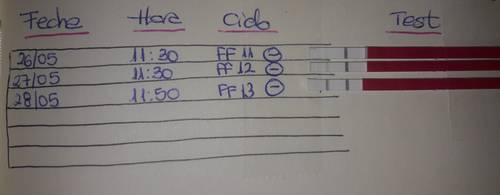 Fecha Hora Ciclo Test
26/05 11:30 FF 11 ⊖
27/05 11:30 FF 12 ⊖
28/05 11:50 FF 13 ⊖